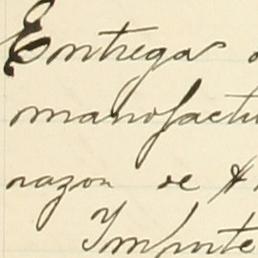 Entrega
manufactu
razon de $
Importe